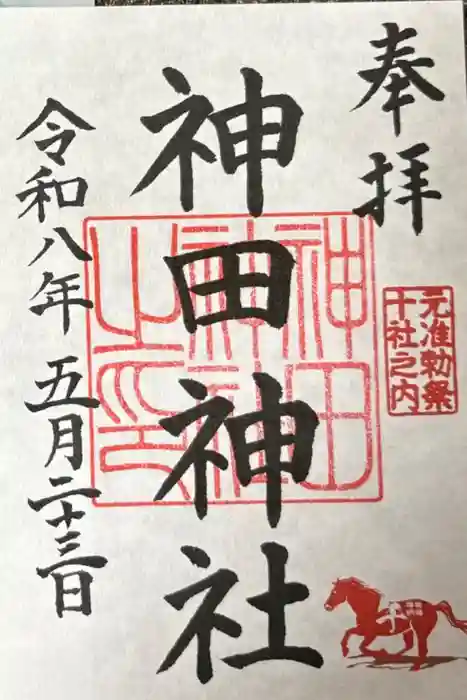 奉拝
元准勅祭
十社之内
神田神社
神田
神社
之印
令和八年 五月二十三日